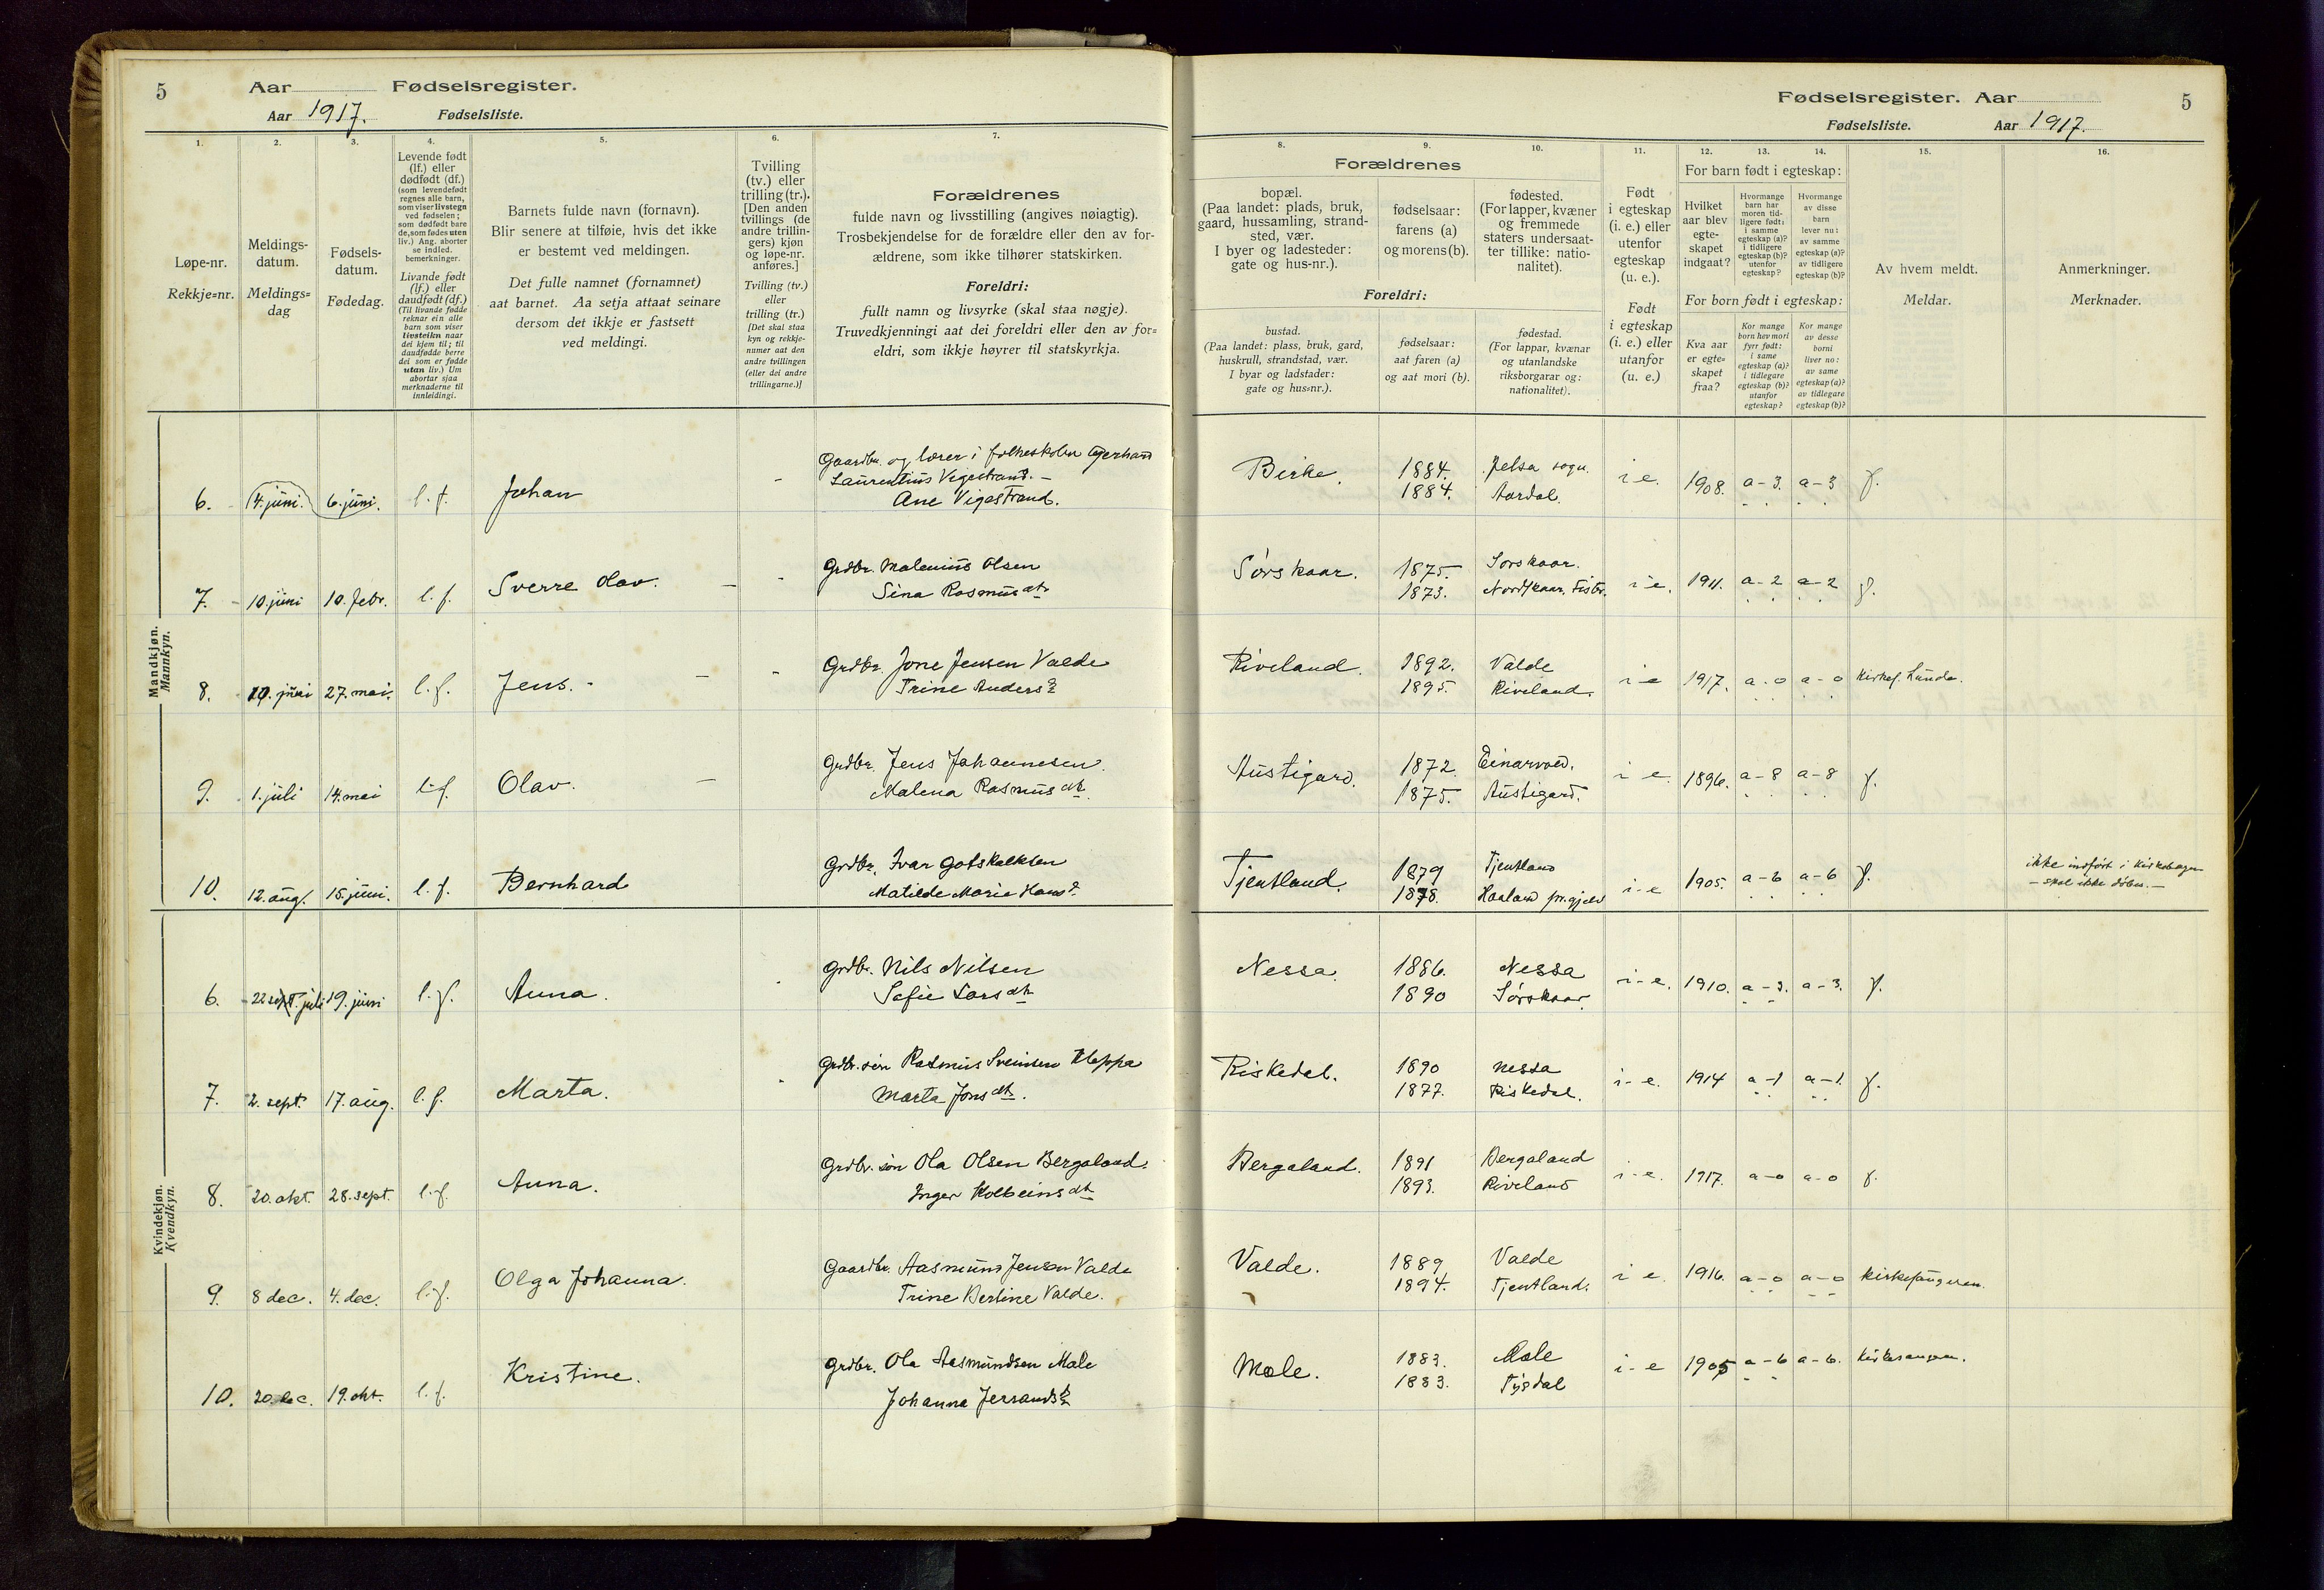 5 Aar Fødselsregister.
Aar 1917. Fødselsliste.
Fødselsregister. Aar 5
Fødselsliste. Aar 1917.
1. 2. 3. 4. 5. 6. 7.
Løpe-nr.
Rekkje=nr.
Meldings-
datum.
Meldings=
dag
Fødsels-
datum.
Fødedag.
Levende født
(lf.) eller
dødfødt (df.)
(som levendefødt
regnes alle barn,
som viser livstegn
ved fødselen;
som dødfødt bare
de, som fødes uten
liv.) Ang. aborter
se indled.
bemerkninger.
Livande født
(lf.) eller
daudfødt (df.)
(Til livande fødde
reknar ein alle
barn som viser
livsteikn naar
dei kjem til; til
daudfødde berre
dei som er fødde
utan liv.) Um
abortar sjaa
merknaderne til
innleidingi.
Barnets fulde navn (fornavn).
Blir senere at tilføie, hvis det ikke
er bestemt ved meldingen.
Det fulle namnet (fornamnet)
aat barnet. Aa setja attaat seinare
dersom det ikkje er fastsett
ved meldingi.
Tvilling
(tv.) eller
trilling (tr.).
[Den anden
tvillings (de
andre trillin-
gers) kjøn
og løpe-nr.
anføres.]
Tvilling (tv.)
eller
trilling (tr.)
[Det skal staa
kyn og rekkje-
numer aat den
andre tvillingen
(eller dei andre
trillingarne.)]
Forældrenes
fulde navn og livsstilling (angives nøiagtig).
Trosbekjendelse for de forældre eller den av for-
ældrene, som ikke tilhører statskirken.
Foreldri:
fullt namn og livsyrke (skal staa nøgje).
Truvedkjenningi aat dei foreldri eller den av for=
eldri, som ikkje høyrer til statskyrkja.
8. 9. 10. 11. 12. 13. 14. 15. 16.
Forældrenes
bopæl.
(Paa landet: plads, bruk,
gaard, hussamling, strand-
sted, vær.
I byer og ladesteder:
gate og hus-nr.).
fødselsaar:
farens (a)
og morens (b).
fødested.
(For lapper, kvæner
og fremmede
staters undersaat-
ter tillike: natio-
nalitet).
Foreldri:
bustad.
(Paa landet: plass, bruk, gard,
huskrull, strandstad, vær.
I byar og ladstader:
gate og hus=nr.).
fødselsaar:
aat faren (a)
og aat mori (b).
fødestad.
(For lappar, kvænar
og utanlandske
riksborgarar og:
nationalitet).
Født
i egteskap
(i. e.) eller
utenfor
egteskap
(u. e.).
Født
i egteskap
(i. e.) eller
utanfor
(u. e.)
For barn født i egteskap:
Hvilket
aar blev
egte-
skapet
indgaat?
Hvormange
barn har
moren tid-
ligere født:
i samme
egteskap (a)?
i tidligere
egteskap (b)?
utenfor
egteskap?
Hvormange
av disse
barn
lever nu:
av samme
egteskap (a)?
av tidligere
egteskap (b)?
For born født i egteskap:
Kva aar
er egte=
skapet
fraa?
Kor mange
born hev mori
fyrr født:
i same
egteskap (a)?
i tidlegare
egteskap (b)?
utanfor
egteskap?
Kor mange
av desse
borni
liver no:
av same
egteskap (a)?
av tidlegare
egteskap (b)?
Av hvem meldt.
Meldar.
Anmerkninger.
Merknader.
Mandkjøn.
Mannkyn.
6. 4. juni. 6. juni. l. f. Johan - Gaardbr. og lærer i folkeskolen Gerhard
Laurentius Vigestrand. -
Ane Vigestrand.
Birke. 1884. Jelsa sogn. i e. 1908. a-3. a-3 f.
1884. Aardal.
7. 10. juni 10. febr. l. f. Sverre Olav. - Grdbr. Malenius Olsen
Sina Rasmusdtr
Sørskaar. 1875. Sørskaar. i e. 1911. a-2 a-2 f.
1873. Nordskaar. Fister.
8. 10. juni 27. mai. l. f. Jens. - Grdbr. Jone Jensen Valde
Trine Andersd.
Riveland. 1892. Valde i-e 1917. a-0 a-0 Kirkes. Lunde.
1895. Riveland.
9. 1. juli 14. mai l. f. Olav. - Grdbr. Jens Johannesen.
Malena Rasmusdtr.
Austigard. 1872. Einarvold. i e. 1896. a-8 a-8 f.
1875. Austigard.
10. 12. aug. 15. juni. l. f. Bernhard Grdbr. Ivar Gotskalksen
Matilde Marie Hansd.
Tjentland. 1879 Tjentland i-e 1905. a-6 a-6 f. ikke indført i kirkebogen
1878. Haaland pr.gjeld - skal ikke døbes. -
Kvindekjøn.
Kvendkyn.
6. 22 sept. juli 19. juni l. f. Anna. Grdbr. Nils Nilsen
Sofie Larsdtr
Nessa. 1886. Nessa i-e. 1910. a-3. a-3. f.
1890 Sørskaar.
7. 2. sept. 17. aug. l. f. Marta. Grdbr. søn Rasmus Sveinsen Kleppa
Marta Jonsdtr.
Riskedal. 1890 Nessa i-e. 1914 a-1 a-1. f.
1877. Riskedal.
8. 20. okt. 28. sept. l. f. Anna. Grdbr. søn Ola Olsen Bergaland.
Inger Kolbeinsdtr
Bergaland. 1891 Bergaland i-e. 1917. a-0 a-0 f.
1893. Riveland
9. 8 dec. 4. dec. l. f. Olga Johanna. Gaardbr. Aasmund Jensen Valde
Trine Bertine Valde.
Valde. 1889 Valde i e. 1916. a-0 a-0 Kirkesangeren.
1894. Tjentland.
10. 20. dec. 19. okt. l. f. Kristine. Grdbr. Ola Aasmundsen Mæle
Johanna Jerrandsd.
Mæle. 1883. Mæle i-e 1905 a-6 a-6. Kirkesangeren.
1883. Tysdal